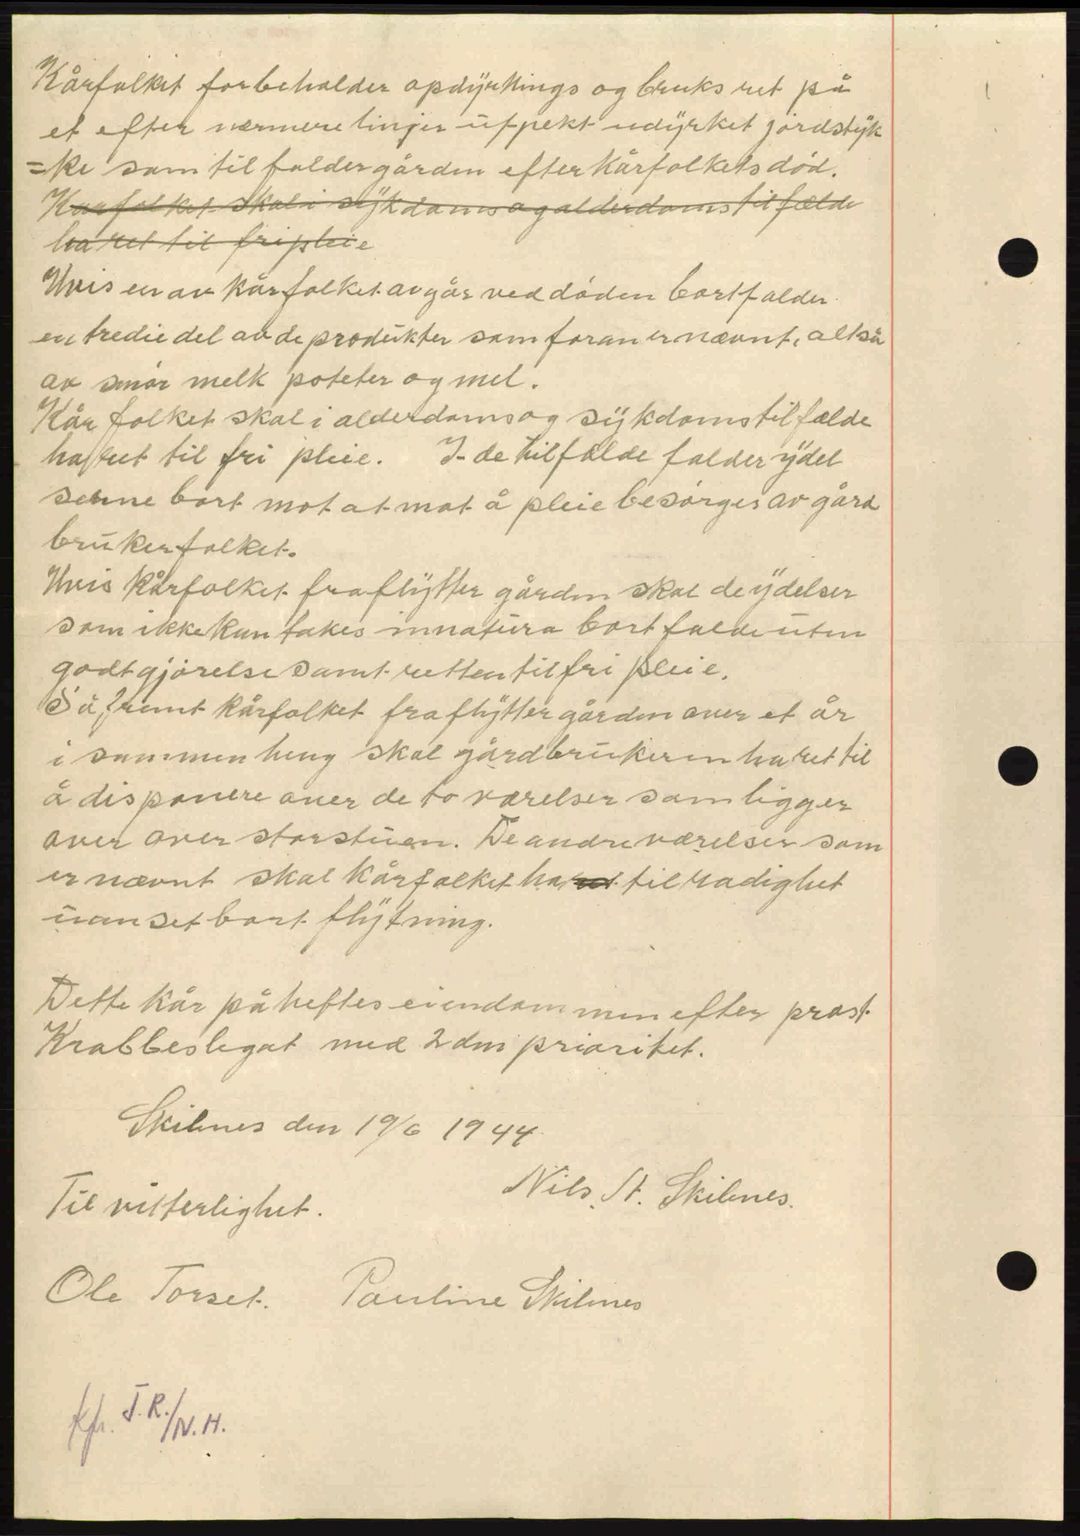 Kårfolket forbeholder opdyrknings og bruks ret på
et efter nærmere linjer utpekt udyrket jordstyk
=ke som tilfalder gården efter Kårfolkets död.
Kårfolket skal i sykdoms og alderdoms tilfælde
ha ret til fri pleie
Hvis en av kårfolket avgår ved döden bortfalder
en tredie del av de produkter som foran er nævnt, altså
av smör melk poteter og mel.
Kårfolket skal i alderdoms og sykdoms tilfælde
ha ret til fri pleie. I de tilfælde falder ydel
serne bort mot at mat å pleie besörges av gård
brukerfolket.
Hvis kårfolket fraflytter gården skal de ydelser
som ikke kan takes innatura bortfalde uten
godtgjörelse samt retten til fri pleie.
Så fremt kårfolket fraflytter gården over et år
i sammenheng skal gårdbrukeren ha ret til
å disponere over de to værelser som ligger
over over storstuen. De andre værelser som
er nævnt skal kårfolket ha ret til radighet
uanset bort flytning.
Dette kår påheftes eiendommen efter prost
Krabbes legat med 2den prioritet.
Skilnes den 19/6 1944
Nils St. Skilnes.
Til vitterlighet.
Ole Torset. Pauline Skilnes
kfr. J.R./N.H.